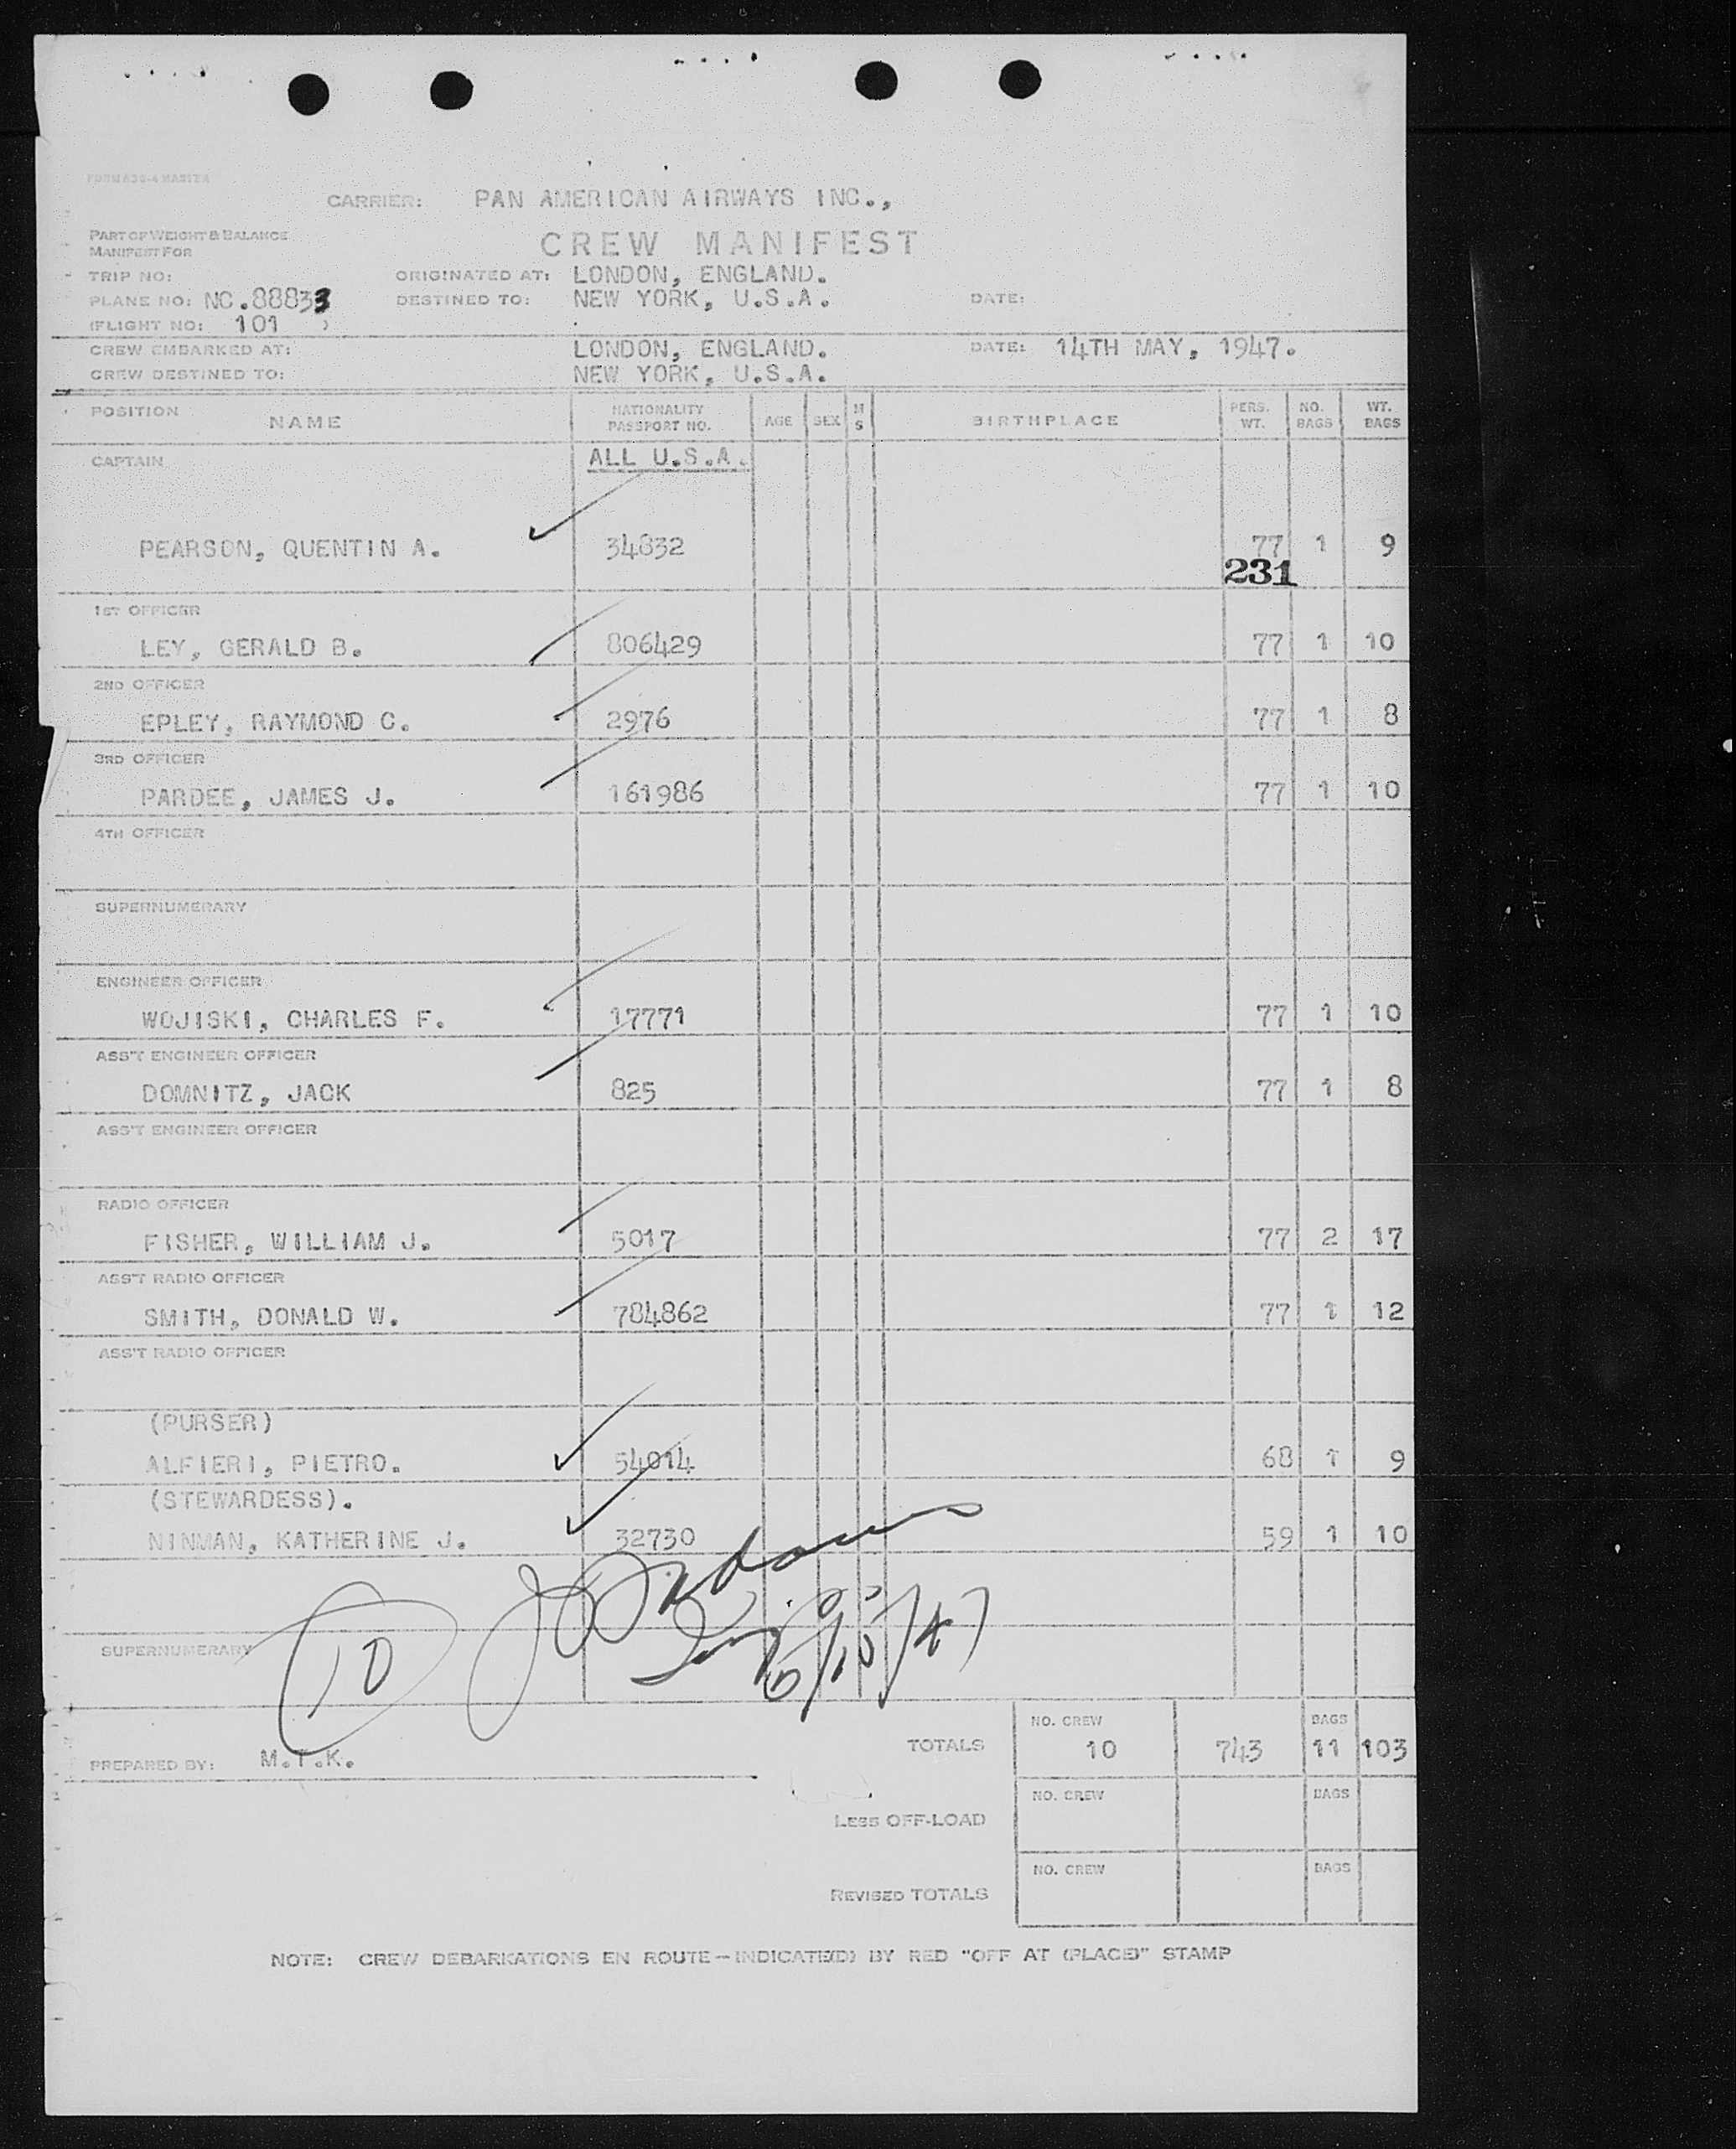 FORM 636-4 MASTER
CARRIER: PAN AMERICAN AIRWAYS INC.,
PART OF WEIGHT & BALANCE
MANIFEST FOR
CREW MANIFEST
TRIP NO: ORIGINATED AT: LONDON, ENGLAND.
PLANE NO: NC.88833 DESTINED TO: NEW YORK, U.S.A. DATE:
(FLIGHT NO: 101 )
CREW EMBARKED AT: LONDON, ENGLAND. DATE: 14TH MAY, 1947.
CREW DESTINED TO: NEW YORK, U.S.A.
POSITION NAME NATIONALITY PASSPORT NO. AGE SEX M S BIRTHPLACE PERS. WT. NO. BAGS WT. BAGS
CAPTAIN ALL U.S.A.
PEARSON, QUENTIN A. 34832 77 1 9
231
1ST OFFICER
LEY, GERALD B. 806429 77 1 10
2ND OFFICER
EPLEY, RAYMOND C. 2976 77 1 8
3RD OFFICER
PARDEE, JAMES J. 161986 77 1 10
4TH OFFICER
SUPERNUMERARY
ENGINEER OFFICER
WOJISKI, CHARLES F. 17771 77 1 10
ASS'T ENGINEER OFFICER
DOMNITZ, JACK 825 77 1 8
ASS'T ENGINEER OFFICER
RADIO OFFICER
FISHER, WILLIAM J. 5017 77 2 17
ASS'T RADIO OFFICER
SMITH, DONALD W. 784862 77 1 12
ASS'T RADIO OFFICER
(PURSER)
ALFIERI, PIETRO. 54014 68 1 9
(STEWARDESS).
NINMAN, KATHERINE J. 32730 59 1 10
10
SUPERNUMERARY
TOTALS NO. CREW 10 743 BAGS 11 103
PREPARED BY: M.T.K.
LESS OFF-LOAD NO. CREW BAGS
REVISED TOTALS NO. CREW BAGS
NOTE: CREW DEBARKATIONS EN ROUTE — INDICATE(D) BY RED "OFF AT (PLACE)" STAMP